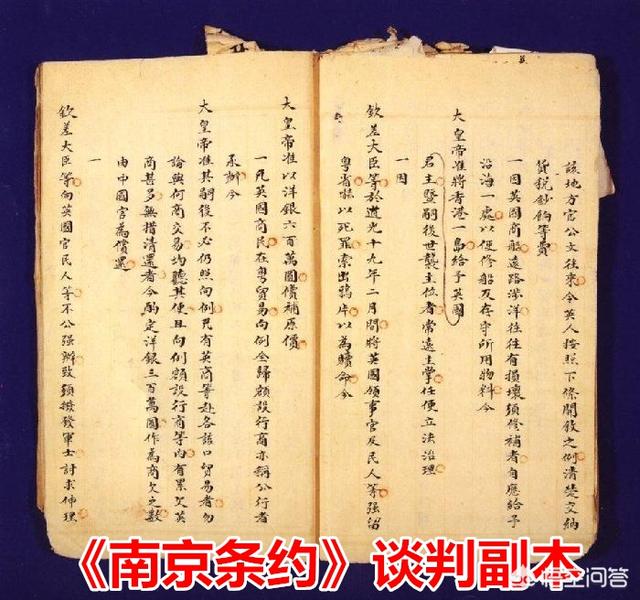 該地方官公文往來令英人按照下條開敘之例清楚交納
貨稅鈔餉等費
一因英國商船遠路涉洋往往有損壞須修補者自應給予
沿海一處以便修船及存守所用物料今
大皇帝准將香港一島給予英國
君主暨嗣後世襲主位者常遠主掌任便立法治理
一因
欽差大臣等於道光十九年二月間將英國領事官及民人等强留
粵省嚇以死罪索出鴉片以為贖命今
大皇帝准以洋銀六百萬圓償補原價
一凡英國商民在粵貿易向例全歸額設行商亦稱公行者
承辦今
大皇帝准其嗣後不必仍照向例凡有英商等赴各該口貿易者勿
論與何商交易均聽其便且向例額設行商等內有累欠英
商甚多無措清還者今酌定洋銀三百萬圓作為商欠之數
由中國官為償還
一
欽差大臣等向英國官民人等不公强辦致須撥發軍士討求伸理
《南京条约》谈判副本
悟空问答